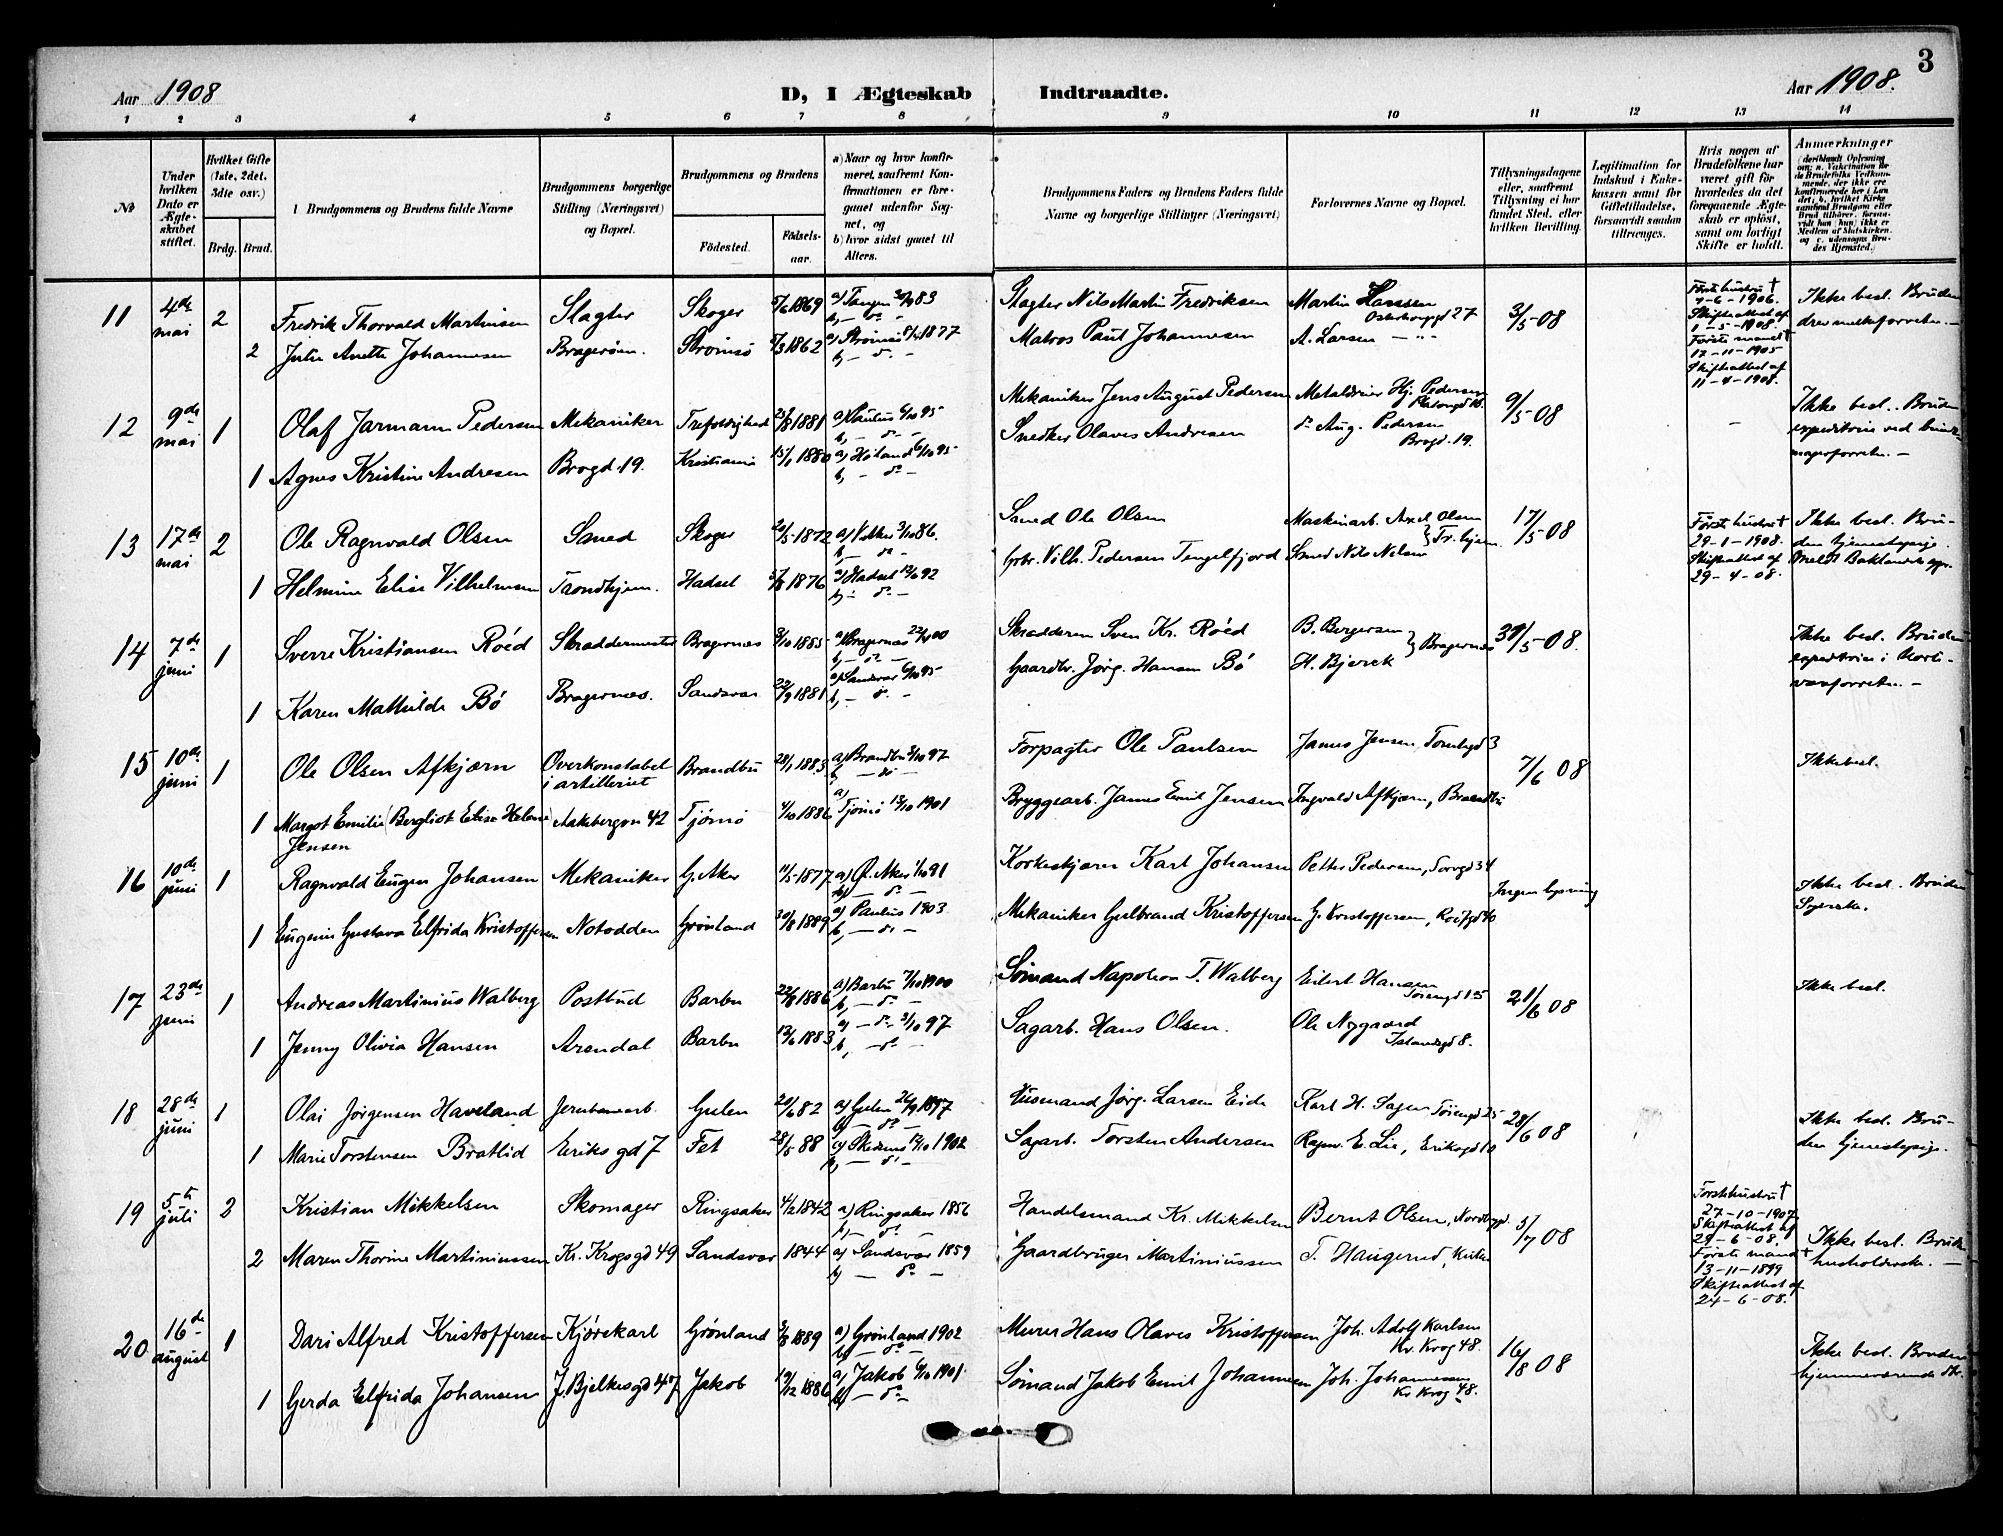 3
Aar 1908
D, I Ægteskab Indtraadte.
Aar 1908.
1 2 3 4 5 6 7 8 9 10 11 12 13 14
No
Under hvilken Dato er Ægteskabet stiftet.
Hvilket Gifte (1ste, 2det, 3die osv.)
Brdg. Brud.
Brudgommens og Brudens fulde Navne
Brudgommens borgerlige Stilling (Næringsvei) og Bopæl.
Brudgommens og Brudens
Födested.
Födsels-aar.
a) Naar og hvor konfirmeret, saafremt Konfirmationen er foregaaet udenfor Sognet, og
b) hvor sidst gaaet til Alters.
Brudgommens Faders og Brudens Faders fulde Navne og borgerlige Stillinger (Næringsvei)
Forlovernes Navne og Bopæl.
Tillysningsdagene eller, saafremt Tillysning ei har fundet Sted, efter hvilken Bevilling.
Legitimation for Indskud i Enkekassen samt for Giftetilladelse, forsaavidt saadan tiltrænges.
Hvis nogen af Brudefolkene har været gift för hvorledes da det foregaaende Ægteskab er oplöst, samt om lovligt Skifte er holdt.
Anmærkninger
11 4de mai 2 Fredrik Thorvald Martinsen Slagter Skoger 5/6 1869 a) Tangen 83 Slagter Nils Martin Fredriksen Martin Hanssen 27 3/5-08
Første hustru † 7-6-1906. Skifteattest af 1-5-1908. Første mand † 17-11-1905 Skifteattest af 11-4-1908.
Ikke besl. Bruden drev melkeforretn. —
2 Julie Anette Johannesen Bragerøen. Strømsø 1862 a) Strømsø 1877 b) — do — Matros Paul Johannesen A. Larsen — " —
12 9de mai 1 Olaf Jarmann Pedersen Mekaniker Trefoldighed 25/8 1881 a) Paulus 95 b) — do — Mekaniker Jens August Pedersen Metaldreier Hj. Pedersen 9/5-08 —
Ikke besl. Bruden
1 Agnes Kristine Andresen Brogd. 19. Kristiania 15/1 1880 a) Høland 6/10 95 b) — do — Snedker Olaves Andresen do Aug. Pedersen Brogd. 19.
13 17de mai 2 Ole Ragnvald Olsen Smed Skoger 20/5-1872 86. b) — do — Smed Ole Olsen Maskinarb. Axel Olsen 17/5-08
Første hustru † 29-1-1908. Skifteattest af 29-4-08.
Ikke besl. Bruden hjemstepige.
1 Helmine Elise Vilhelmsen Trondhjem. Hadsel 1876 a) Hadsel 92 b) — do — Grbr. Vilh. Pedersen Tengelfjord Smed Nils Nilsen
14 7de juni 1 Sverre Kristiansen Roéd Skræddermester Bragernæs 3/10 1885 a) Bragernæs 00 b) — do — Skrædderm Sven Kr. Roéd B. Bergersen } Bragernæs 08.
Ikke besl. Bruden
1 Karen Mathilde Bö Bragernæs. Sandsvær 22/9 1881 a) Sandsvær 6/10 95 b) — do — Gaardbr. Jørg. Hansen Bö H. Bjerck
15 10de juni 1 Ole Olsen Afkjærn Overkonstabel i artilleriet Brandbu 28/1 1883 a) Brandbu 97 b) — do — Forpagter Ole Paulsen James Jensen, 3 7/6 08
Ikke besl.
1 Margot Emilie (Bergliot Elise Helene) Jensen Aakebergvn 42 Tjömö 4/10 1886 a) Tjömö 1901 Bryggearb. James Emil Jensen Ingvald Afkjærn, Brandbu
16 10de juni 1 Ragnvald Eugen Johansen Mekaniker G. Aker 1877 a) Ø. Aker 91 b) — do — Korkeskjærer Karl Johansen Petter Pedersen, Torvgd 34 Ingen lysning
Ikke besl. Bruden Syerske.
1 Eugenie Gustava Elfrida Kristoffersen Notodden Grönland 1889 a) Paulus 1903 b) — do — Mekaniker Gulbrand Kristoffersen G. Kristoffersen,
17 23de juni 1 Andreas Martinius Walberg Postbud Barbu 22/8 1886 a) Barbu 7/10 1900 b) — do — Sömand Napoleon T. Walberg Eilert Hansen 21/6 08
Ikke besl.
1 Jenny Olivia Hansen Arendal Barbu 1883 a) — do — 97 b) — do — Sagarb. Hans Olsen. Ole Nygaard Islandsgd 8.
18 28de juni 1 Olai Jörgensen Haveland Jernbanearb. Gulen 82 a) Gulen 1897 b) — do — Husmand Jörg. Larsen Eide Karl H. Sagen 28/6 08
Ikke besl. Bruden tjenestepige.
1 Marie Torstensen Bratlid Eriksgd 7 Fet 28/5 88 a) Skedsmo 1902 b) — do — Sagarb. Torsten Andersen Ragnv. E. Lie, Eriksgd 10
19 5te juli 2 Kristian Mikkelsen Skomager Ringsaker 1842 a) Ringsaker 1856 b) — do — Handelsmand Kr. Mikkelsen Bernt Olsen, 5/7 08
Første hustru † 27-10-1907. Skifteattest af 29-6-08. Første mand † 13-11-1899 Skifteattest af 24-6-08.
Ikke besl. Bruden husholderske. —
2 Maren Thorine Martiniussen Kr. Krogsgd 49 Sandsvær 1844 a) Sandsvær 1859 b) — do — Gaardbruger Martiniussen T. Haugerud,
20 16de august 1 Dari Alfred Kristoffersen Kjörekarl Grönland 1889 a) Grönland 1902 b) — do — Murer Hans Olaves Kristoffersen Joh. Adolf Karlsen Kr. Krog 48. 16/8 08
Ikke besl. Bruden hjemmeværende
1 Gerda Elfrida Johansen J. Bjelkesgd 47 Jakob 19/12 1886 a) Jakob 6/10 1901 b) — do — Sömand Jakob Emil Johannesen Joh. Johannessen Kr Krog 48.